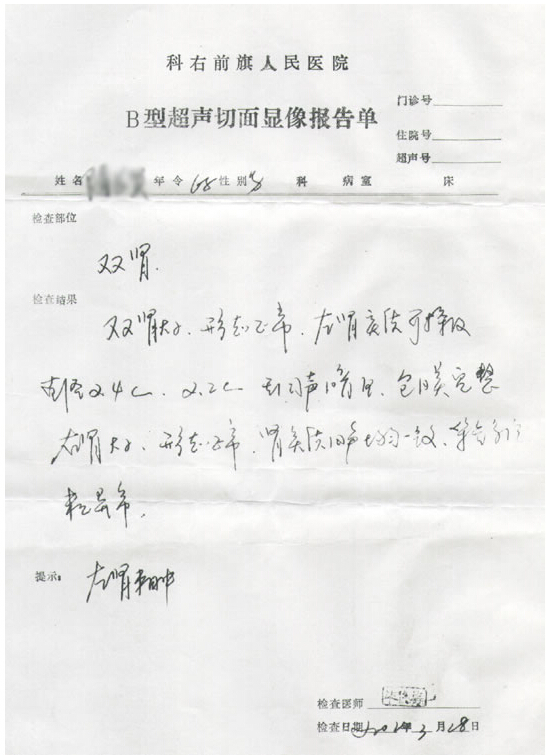 科右前旗人民医院
B型超声切面显像报告单
门诊号
住院号
超声号
姓名 年令 68 性别 男 科 病室 床
检查部位
双肾.
检查结果
双肾大小、形态正常、左肾实质可探及
直径2.4c 2.2c 包膜完整
大小、形态正常、肾实质回声均一致、
异常.
提示: 左肾囊肿
检查医师
检查日期 3月28日